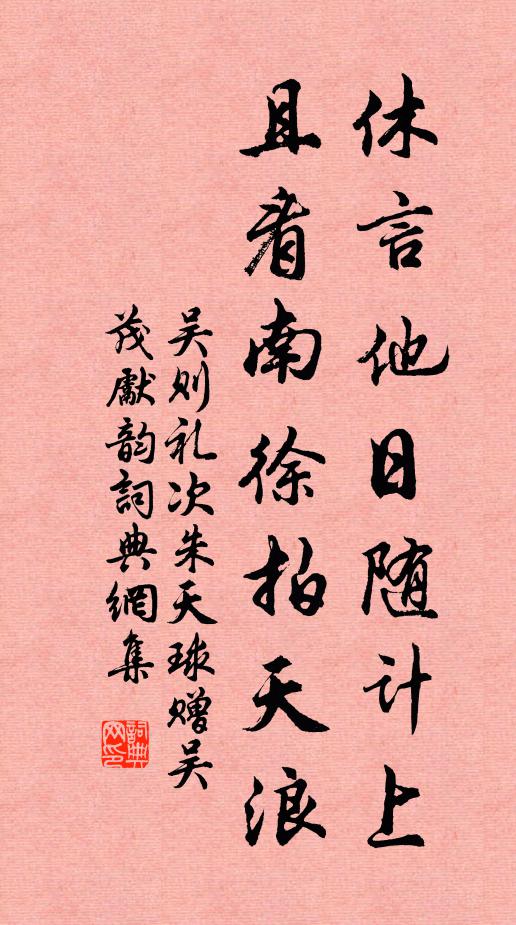 休言他日随计上
且看南徐拍天浪
吴则礼次朱天球赠吴
茂獻韵詞典網集
詞典
网印